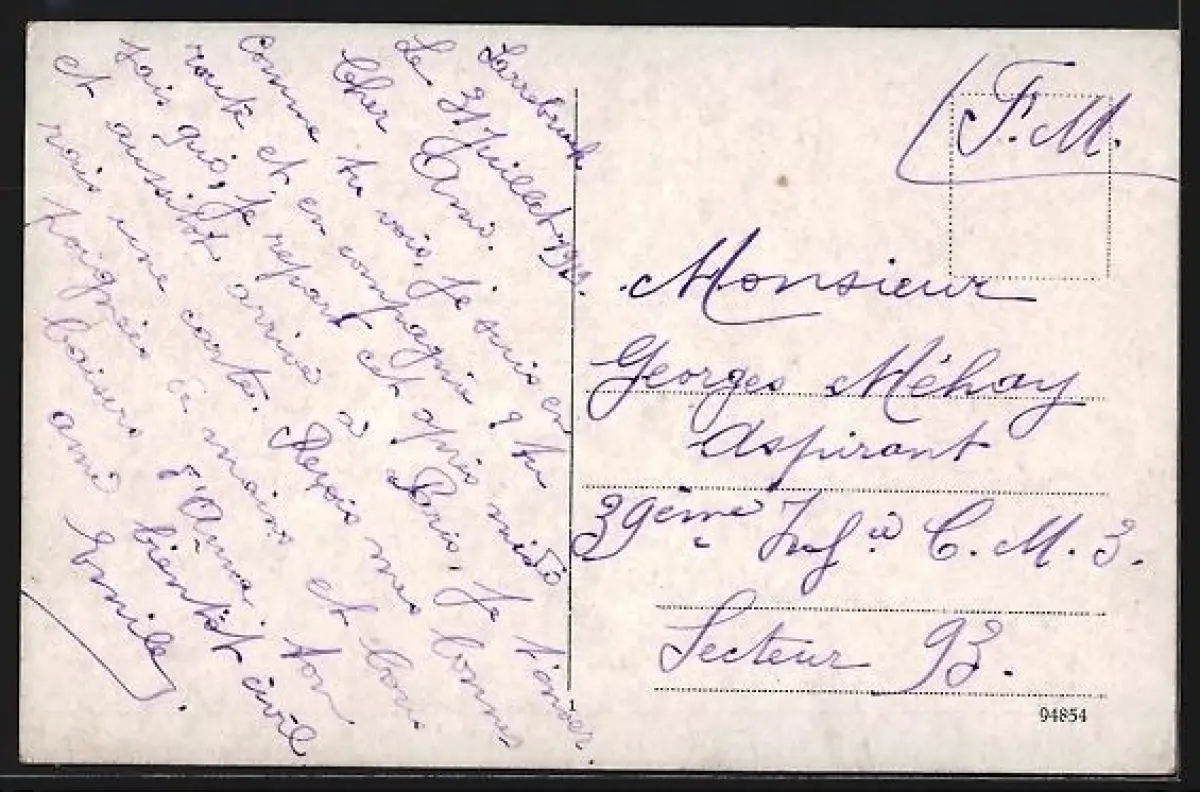 Sarrebruck
Le 31 Juillet 1919.
Cher Ami.
Comme tu vois, Je suis en
route et en compagnie q tu
sais qui, Je repart cet après midi
et aussitôt arrivé à Paris, Je t'enver
rais une carte. Reçois mes bonnes
poignées de mains et bons
baisers d'Ami, ton
ami bientôt civil
Emile.
F. M.
Monsieur
Georges Méhay
Aspirant
39ème Infie C. M. 3.
Secteur 93.
94854
1